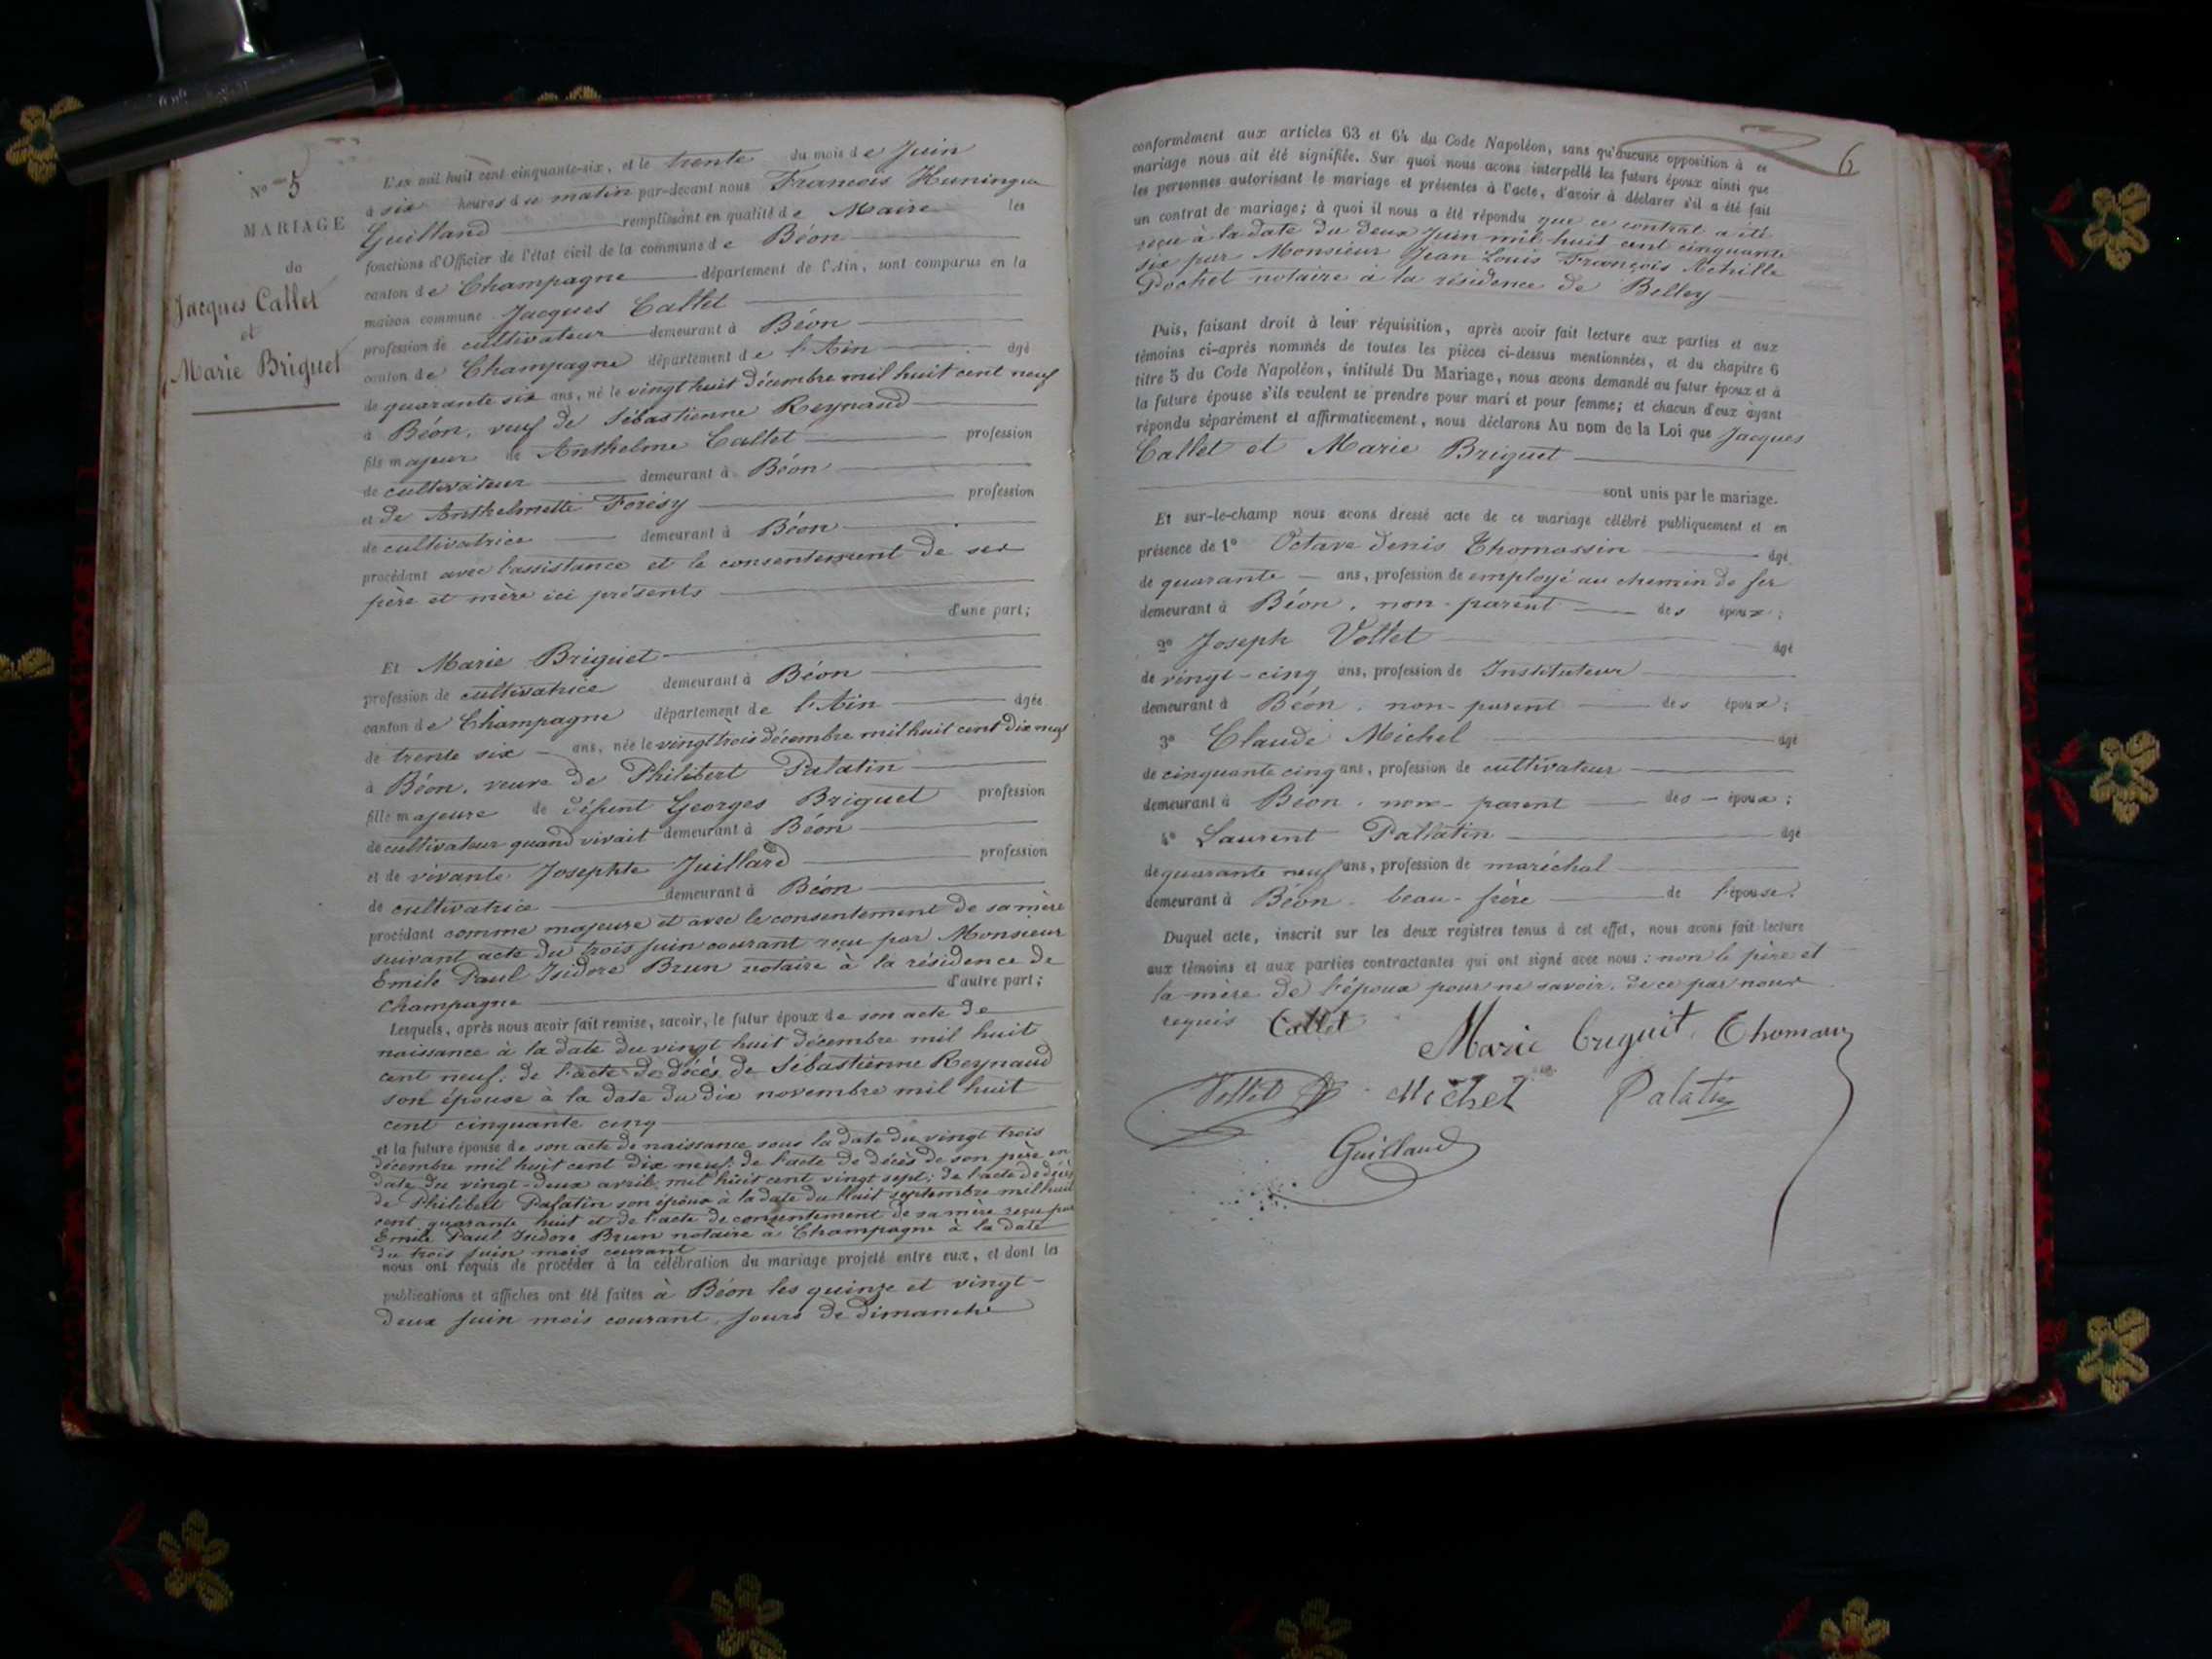 N° 5
MARIAGE
de
Jacques Callet
et
Marie Briguet
L'an mil huit cent cinquante-six, et le trente du mois de Juin
à six heures du matin par-devant nous François Huningue
Guilland remplissant en qualité de Maire les
fonctions d'Officier de l'état civil de la commune de Béon
canton de Champagne département de l'Ain, sont comparus en la
maison commune Jacques Callet
profession de cultivateur demeurant à Béon
canton de Champagne département de l'Ain âgé
de quarante six ans, né le vingt huit décembre mil huit cent neuf
à Béon, veuf de Sébastienne Reynaud
fils majeur de Anthelme Callet profession
de cultivateur demeurant à Béon
et de Anthelmette Forésy profession
de cultivatrice demeurant à Béon
procédant avec l'assistance et le consentement de ses
père et mère ici présents
d'une part;
Et Marie Briguet
profession de cultivatrice demeurant à Béon
canton de Champagne département de l'Ain âgée
de trente six ans, née le vingt trois décembre mil huit cent dix neuf
à Béon, veuve de Philibert Palatin
fille majeure de défunt Georges Briguet profession
de cultivateur quand vivait demeurant à Béon
et de vivante Josephte Juillard profession
de cultivatrice demeurant à Béon
procédant comme majeure et avec le consentement de sa mère
suivant acte du trois juin courant reçu par Monsieur
Emile Paul Isidore Brun notaire à la résidence de
Champagne d'autre part;
Lesquels, après nous avoir fait remise, savoir, le futur époux de son acte de
naissance à la date du vingt huit décembre mil huit
cent neuf. de l'acte de décès de Sébastienne Reynaud
son épouse à la date du dix novembre mil huit
cent cinquante cinq
et la future épouse de son acte de naissance sous la date du vingt trois
décembre mil huit cent dix neuf. de l'acte de décès de son père en
date du vingt-deux avril mil huit cent vingt sept; de l'acte de décès
de Philibert Palatin son époux à la date du huit septembre mil huit
cent quarante huit et de l'acte de consentement de sa mère reçu par
Emile Paul Isidore Brun notaire à Champagne à la date
du trois juin mois courant
nous ont requis de procéder à la célébration du mariage projeté entre eux, et dont les
publications et affiches ont été faites à Béon les quinze et vingt-
deux juin mois courant, jours de dimanche
6
conformément aux articles 63 et 64 du Code Napoléon, sans qu'aucune opposition à ce
mariage nous ait été signifiée. Sur quoi nous avons interpellé les futurs époux ainsi que
les personnes autorisant le mariage et présentes à l'acte, d'avoir à déclarer s'il a été fait
un contrat de mariage; à quoi il nous a été répondu que ce contrat a été
reçu à la date du deux Juin mil huit cent cinquante
six par Monsieur Jean Louis François Achille
Pochet notaire à la résidence de Belley
Puis, faisant droit à leur réquisition, après avoir fait lecture aux parties et aux
témoins ci-après nommés de toutes les pièces ci-dessus mentionnées, et du chapitre 6
titre 5 du Code Napoléon, intitulé Du Mariage, nous avons demandé au futur époux et à
la future épouse s'ils veulent se prendre pour mari et pour femme; et chacun d'eux ayant
répondu séparément et affirmativement, nous déclarons Au nom de la Loi que Jacques
Callet et Marie Briguet
sont unis par le mariage.
Et sur-le-champ nous avons dressé acte de ce mariage célébré publiquement et en
présence de 1° Octave Denis Thomassin âgé
de quarante ans, profession de employé au chemin de fer
demeurant à Béon, non-parent des époux;
2° Joseph Vollet âgé
de vingt-cinq ans, profession de Instituteur
demeurant à Béon, non-parent des époux;
3° Claude Michel âgé
de cinquante cinq ans, profession de cultivateur
demeurant à Béon, non-parent des époux;
4° Laurent Pallatin âgé
de quarante neuf ans, profession de maréchal
demeurant à Béon, beau-frère de l'épouse.
Duquel acte, inscrit sur les deux registres tenus à cet effet, nous avons fait lecture
aux témoins et aux parties contractantes qui ont signé avec nous: non le père et
la mère de l'époux pour ne savoir, de ce par nous
requis Callet Marie briguit Thomassin
Vollet Michel Palatin
Guilland